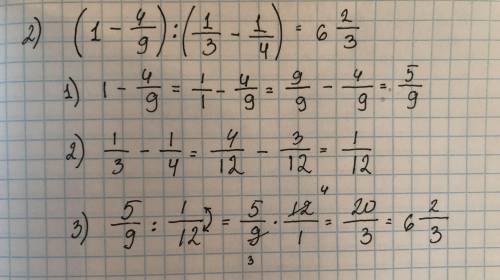 2) (1 - 4/9) : (1/3 - 1/4) = 6 2/3
1) 1 - 4/9 = 1/1 - 4/9 = 9/9 - 4/9 = 5/9
2) 1/3 - 1/4 = 4/12 - 3/12 = 1/12
3) 5/9 : 1/12 = 5/9 3 · 12 4/1 = 20/3 = 6 2/3